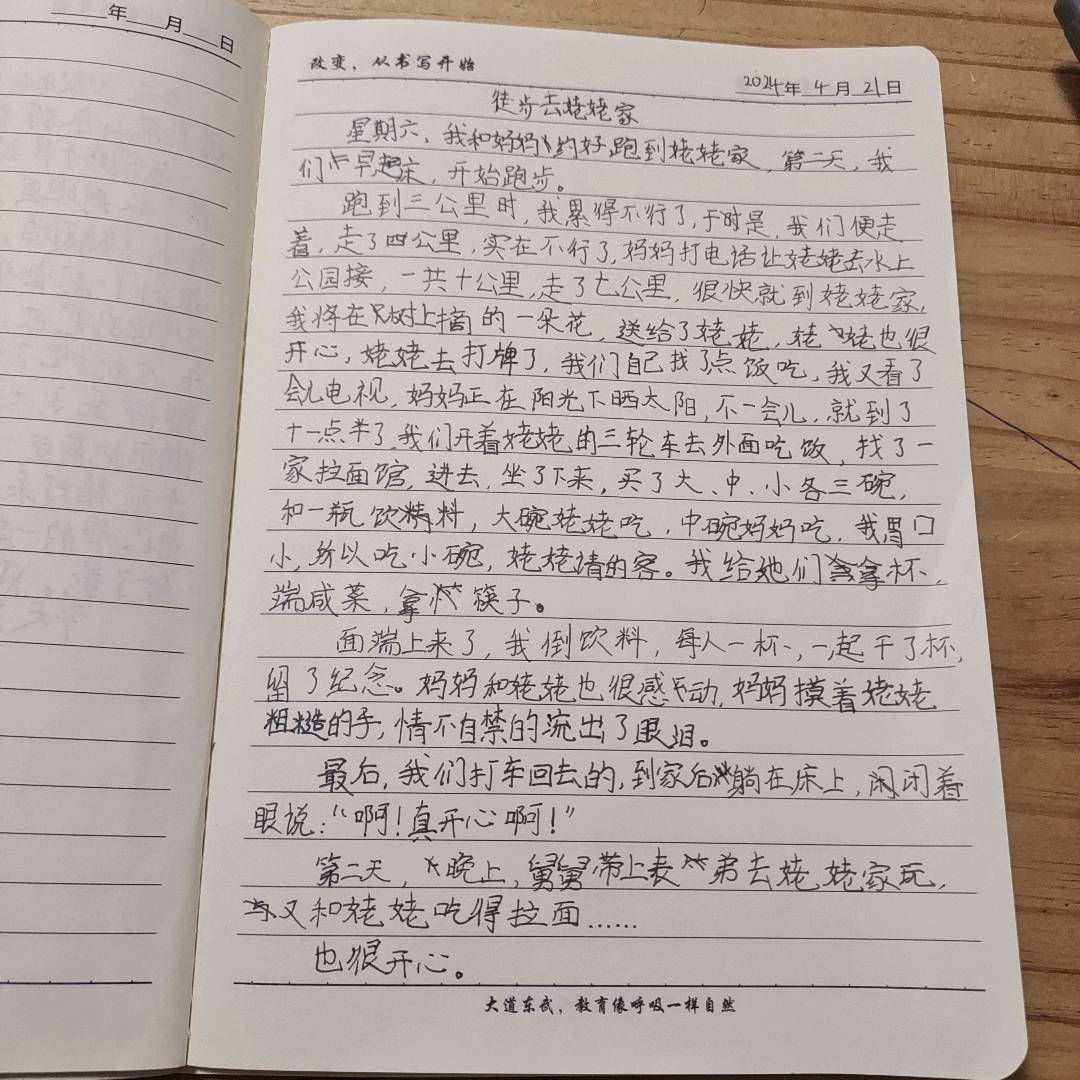 年 月 日
改变，从书写开始
2024年 4月 21日
徒步去姥姥家
星期六，我和妈妈约好跑到姥姥家，第二天，我
们早起床，开始跑步。
跑到三公里时，我累得不行了，于时是，我们便走
着，走了四公里，实在不行了，妈妈打电话让姥姥去水上
公园接，一共十公里，走了七公里，很快就到姥姥家，
我将在树上摘的一朵花，送给了姥姥，姥姥也很
开心，姥姥去打牌了，我们自己找了点饭吃，我又看了
会儿电视，妈妈正在阳光下晒太阳，不一会儿，就到了
十一点半了，我们开着姥姥的三轮车去外面吃饭，找了一
家拉面馆，进去，坐了下来，买了大、中、小各三碗，
和一瓶饮料，大碗姥姥吃，中碗妈妈吃，我胃口
小，所以吃小碗，姥姥请的客。我给她们拿杯，
端咸菜，拿筷子。
面端上来了，我倒饮料，每人一杯，一起干了杯，
留了纪念。妈妈和姥姥也很感动，妈妈摸着姥姥
粗糙的手，情不自禁的流出了眼泪。
最后，我们打车回去的，到家后躺在床上，闭着
眼说：“啊！真开心啊！”
第二天，晚上，舅舅带上表弟去姥姥家玩，
又和姥姥吃得拉面……
也很开心。
大道东武，教育像呼吸一样自然